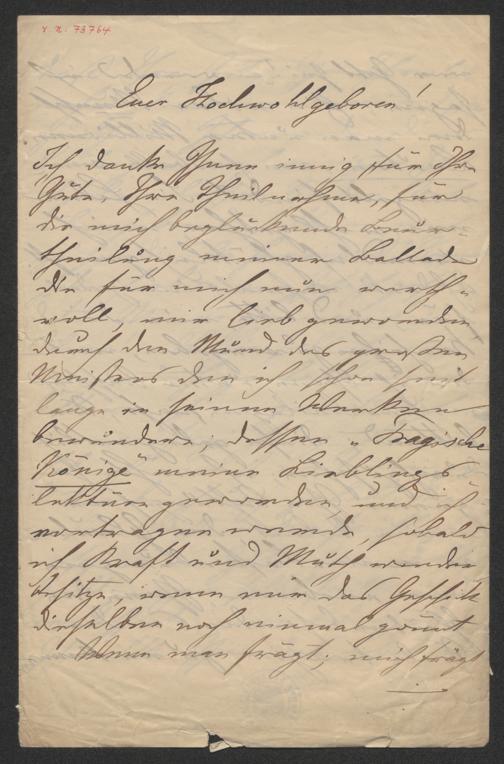 I. N. 73764
Euer Hochwohlgeboren!
Ich danke Ihnen innig für Ihre
Güte, Ihre Theilnahme, für
die mich beglückende Beur-
theilung meiner Ballade
die für mich nun werth-
voll, mir lieb geworden
durch den Mund des großen
Ministers den ich schon seit
lange in seinen Werken
bewundere, dessen „Tragische
Könige" meine Lieblings
lektüre geworden, und ich
vortragen werde, sobald
ich Kraft und Muth wieder
besitze, wenn mir das Geschick
dieselben noch einmal gönnt
Wenn man frägt; mich frägt